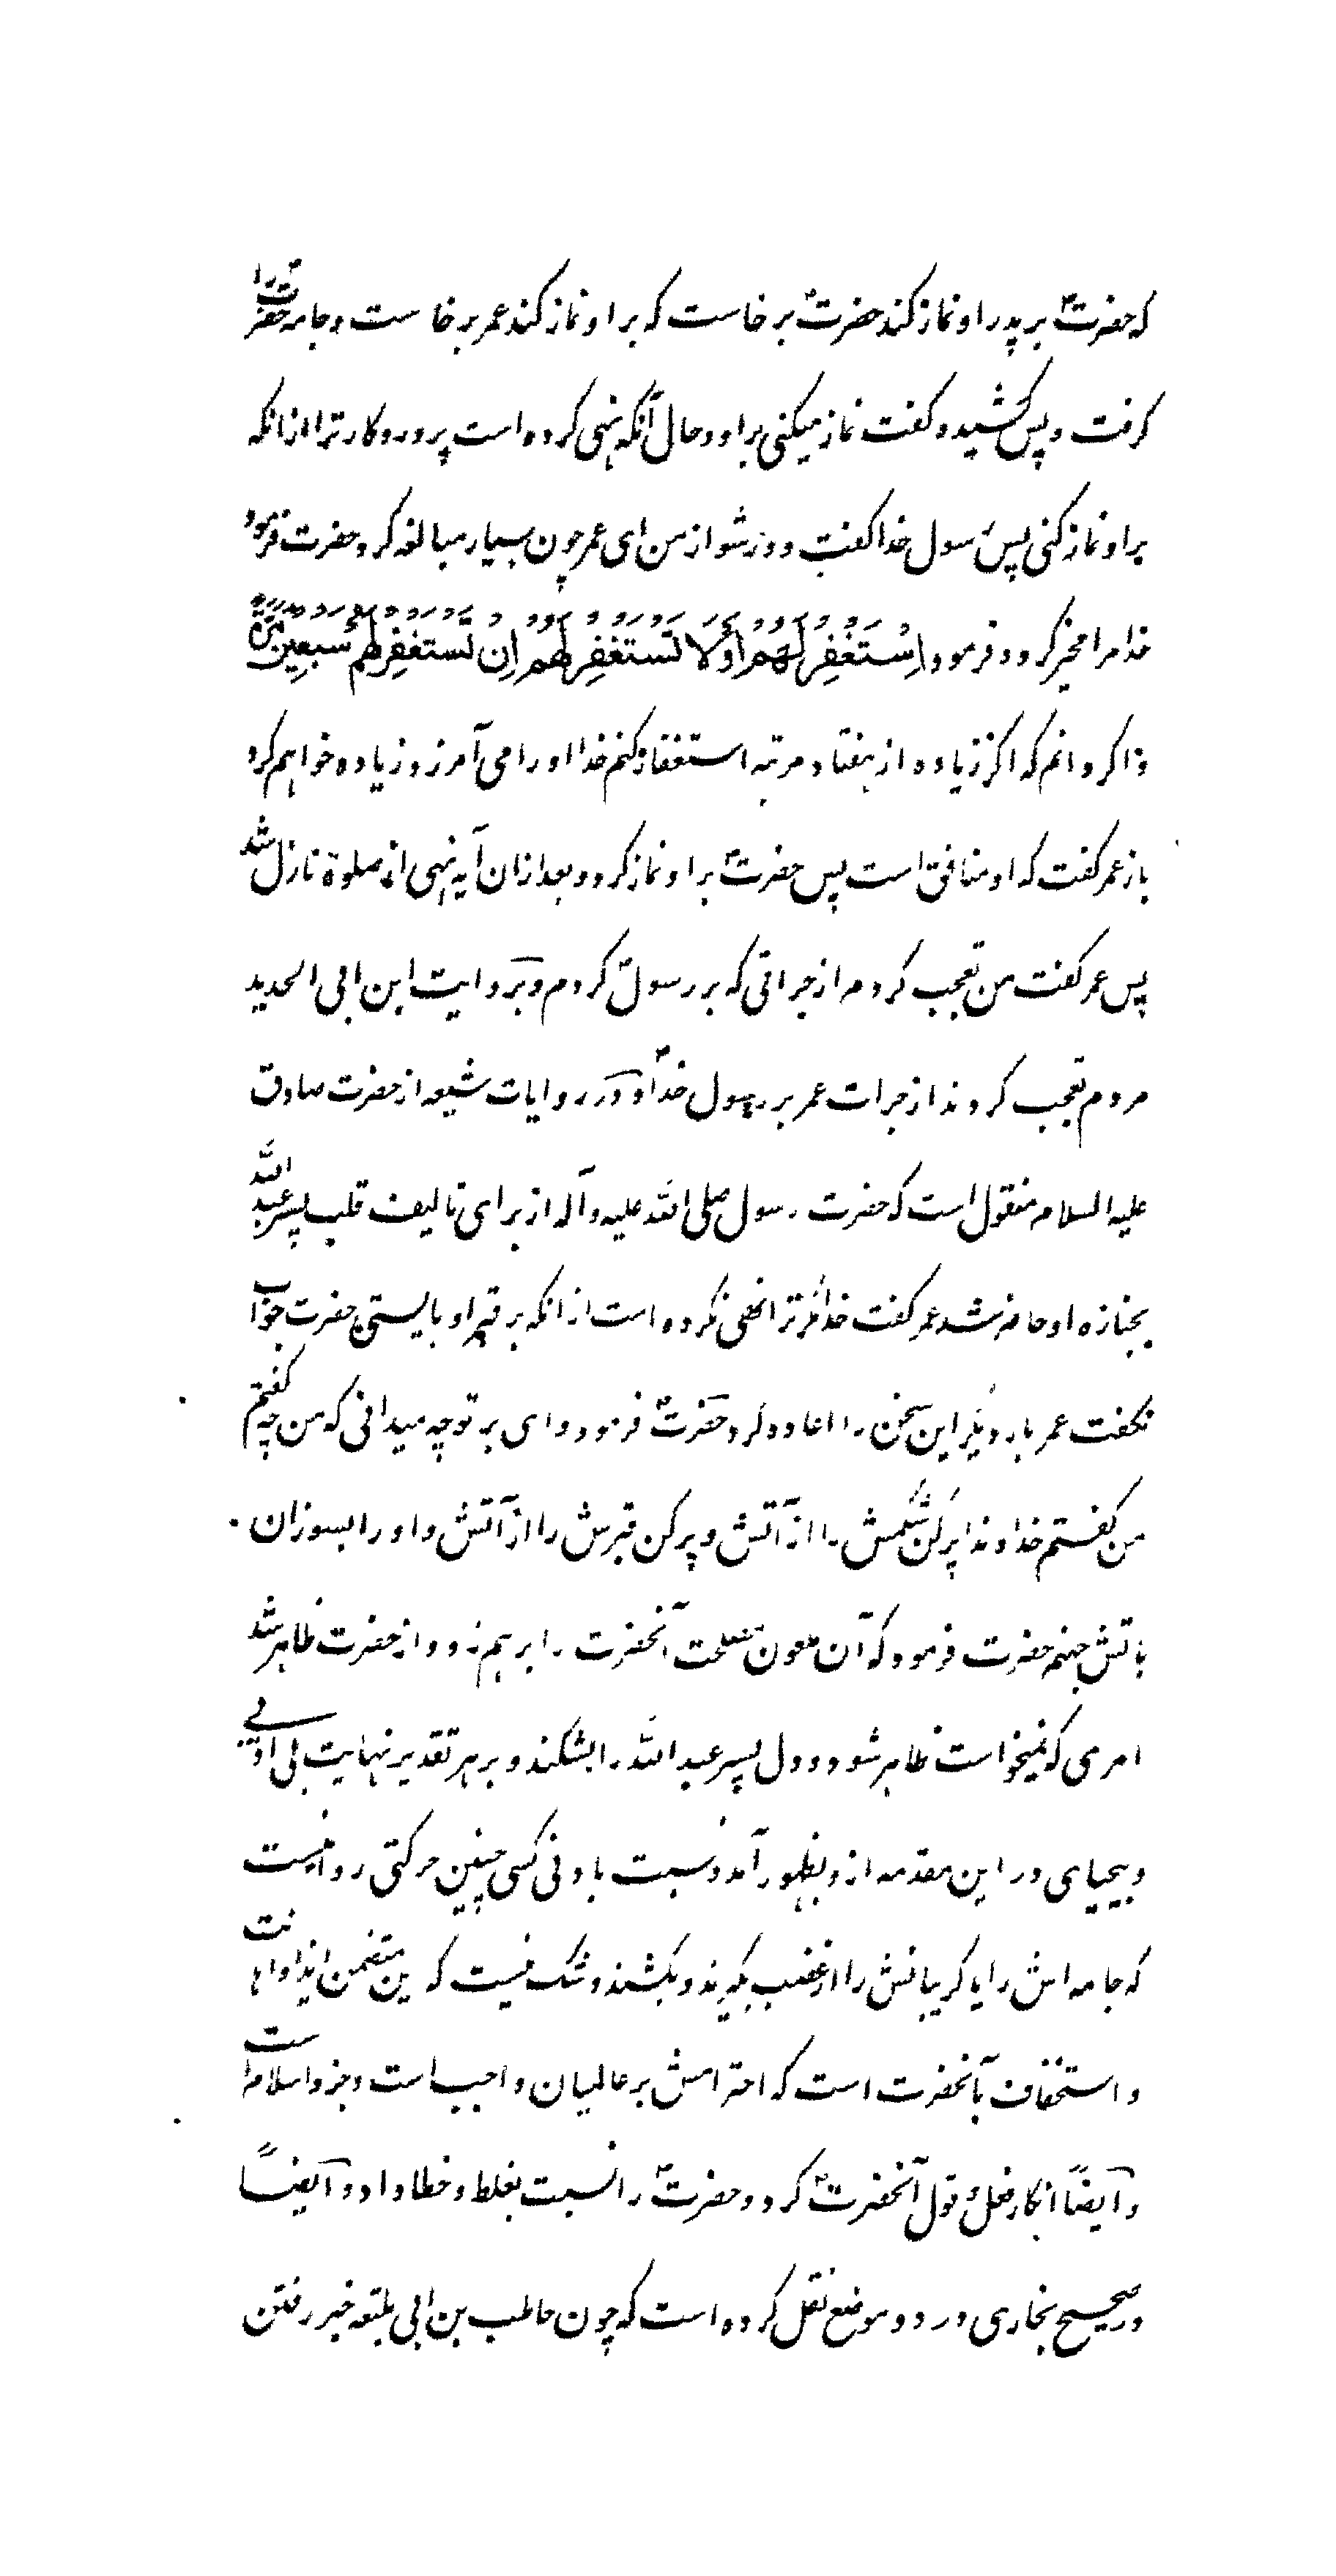 که حضرتؐ بر پدر او نماز کند حضرتؐ برخاست که بر او نماز کند عمر برخاست و جامه حضرتؐ را
کرفت و پس کشید و کفت نماز میکنی بر او و حال آنکه نهی کرده است پروردکار ترا از انکه
بر او نماز کنی پس رسول خدا کفت دور شو از من ای عمر چون بسیار مبالغه کرد حضرت فرمود
خدا مرا مخیر کرد و فرمود اِسْتَغْفِرْ لَهُمْ اَوْ لَا تَسْتَغْفِرْ لَهُمْ اِنْ تَسْتَغْفِرْ لَهُمْ سَبْعِیْنَ مَرَّةً
و اکر دانم که اکر زیاده از هفتاد مرتبه استغفار کنم خدا او را می آمرزد زیاده خواهم کرد
باز عمر کفت که او منافق است پس حضرتؐ بر او نماز کرد و بعد ازان آیه نهی از صلوة نازل شد
پس عمر کفت من تعجب کردم از جراتی که بر رسولؐ کردم و بروایت ابن ابی الحدید
مردم تعجب کردند از جرات عمر بر رسول خداؐ و در روایات شیعه از حضرت صادق
علیه السلام منقول است که حضرت رسول صلی الله علیه و آله از برای تالیف قلب پسر عبد الله
بجنازه او حاضر شد عمر کفت خدا مکر ترا نهی نکرده است از انکه بر قبر او بایستی حضرت جواب
نکفت عمر بار دیکر این سخن را اعاده کرد حضرتؐ فرمود وای بر تو چه میدانی که من چه کفتم
من کفتم خداوندا پر کن شکمش را از آتش و پر کن قبرش را از آتش و او را بسوزان
باتش جهنم حضرت فرمود که آن ملعون مصلحت آنحضرت را برهم زد و از حضرت ظاهر شد
امری که نمیخواست ظاهر شود و دل پسر عبد الله را بشکند و بر هر تقدیر نهایت بی ادبی
و بیحیای در این مقدمه از و بظهور آمد و نسبت بادنی کسی چنین حرکتی روا نیست
که جامه اش را یا کریبانش را از غضب بکیرند و بکشند و شک نیست که این متضمن ایذا و اهانت
و استخفاف بآنحضرت است که احترامش بر عالمیان واجب است و جزو اسلام است
و آیضاً انکار فعل و قول آنحضرتؐ کرد و حضرتؐ را نسبت بغلط و خطا داد و آیضاً
در صحیح بخاری در دو موضع نقل کرده است که چون حاطب بن ابی بلتعه خبر رفتن